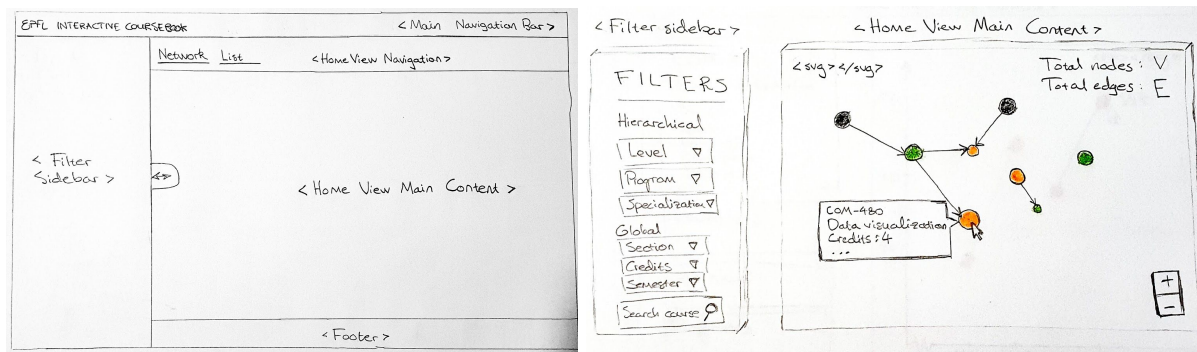 EPFL INTERACTIVE COURSEBOOK
< Main Navigation Bar >
Network List
< Home View Navigation >
< Filter
Sidebar >
< Home View Main Content >
< Footer >
< Filter sidebar >
FILTERS
Hierarchical
Level
Program
Specialization
Global
Section
Credits
Semester
Search course
< Home View Main Content >
<svg></svg>
Total nodes: V
Total edges: E
COM-480
Data visualization
Credits: 4
...
+
-